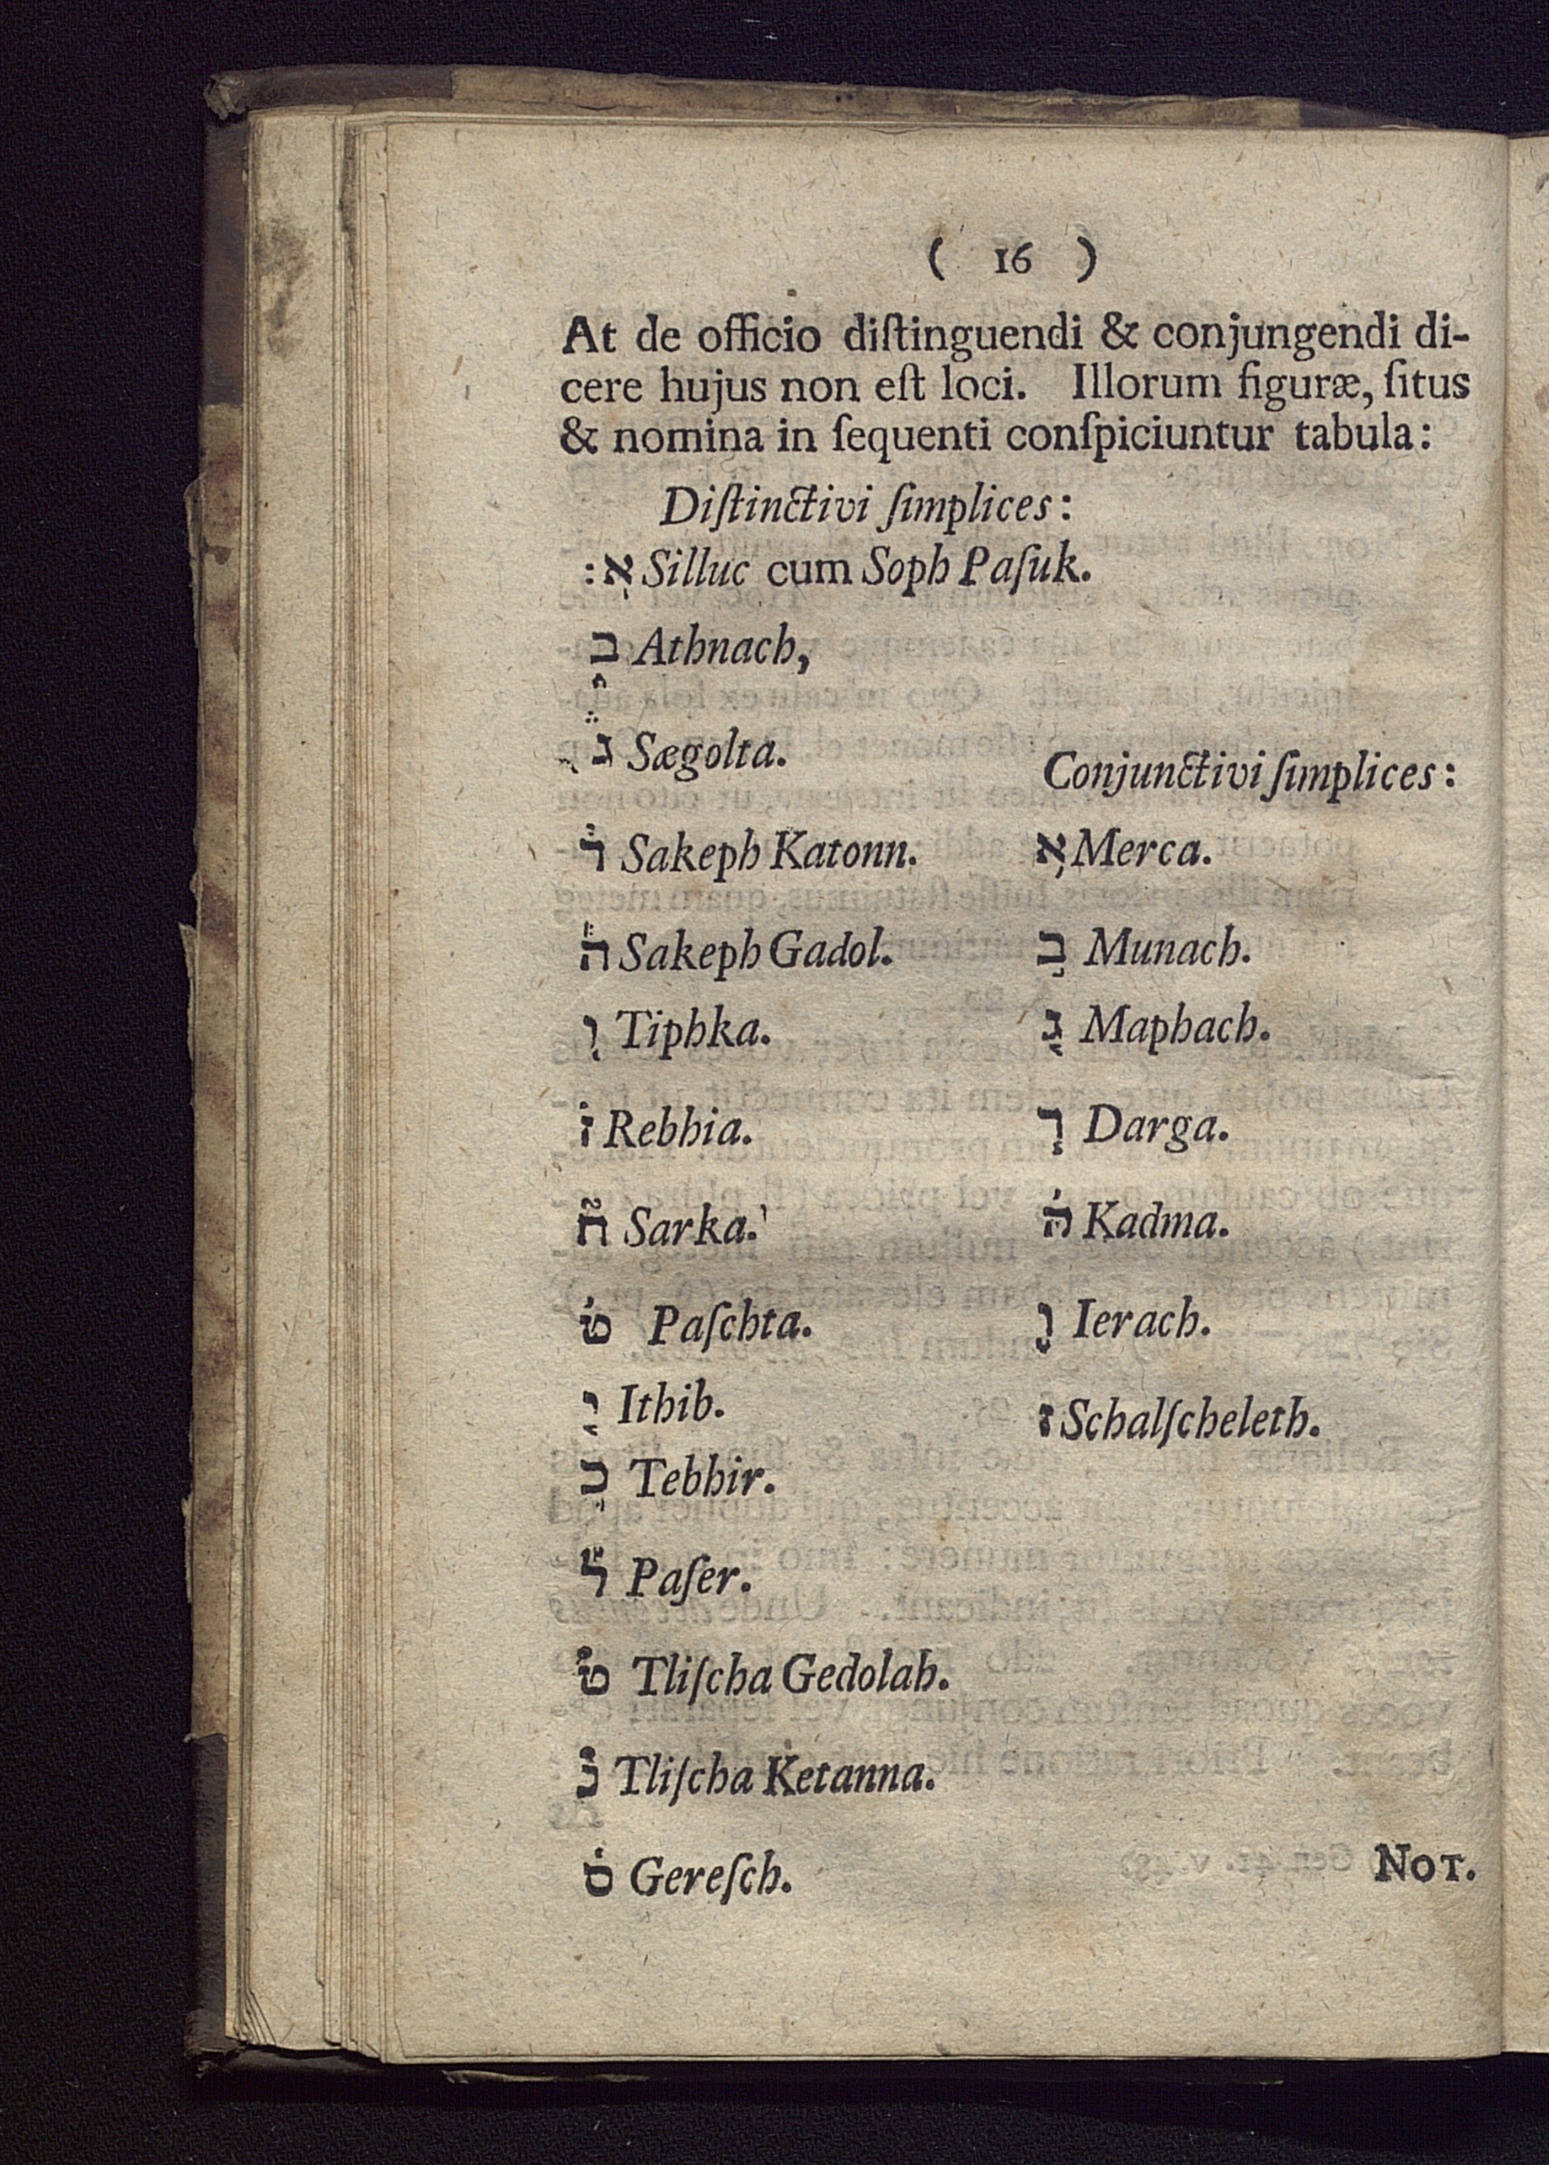 ( 16 )
At de officio diſtinguendi & conjungendi di-
cere hujus non eſt loci. Illorum figuræ, ſitus
& nomina in ſequenti conſpiciuntur tabula:
Diſtinctivi ſimplices:
אֽ׃ Silluc cum Soph Paſuk.
ב֑ Athnach,
ג֒ Sægolta.
ד֔ Sakeph Katonn.
ה֕ Sakeph Gadol.
ו֖ Tiphka.
ז֗ Rebhia.
ח֘ Sarka.
ט֙ Paſchta.
י֚ Ithib.
כ֛ Tebhir.
ל֡ Paſer.
Tliſcha Gedolah.
נ֩ Tliſcha Ketanna.
ס֜ Gereſch.
Conjunctivi ſimplices:
א֥ Merca.
ב֣ Munach.
ג֤ Maphach.
ד֧ Darga.
ה֨ Kadma.
ו֪ Ierach.
ז Schalſcheleth.
NOT.